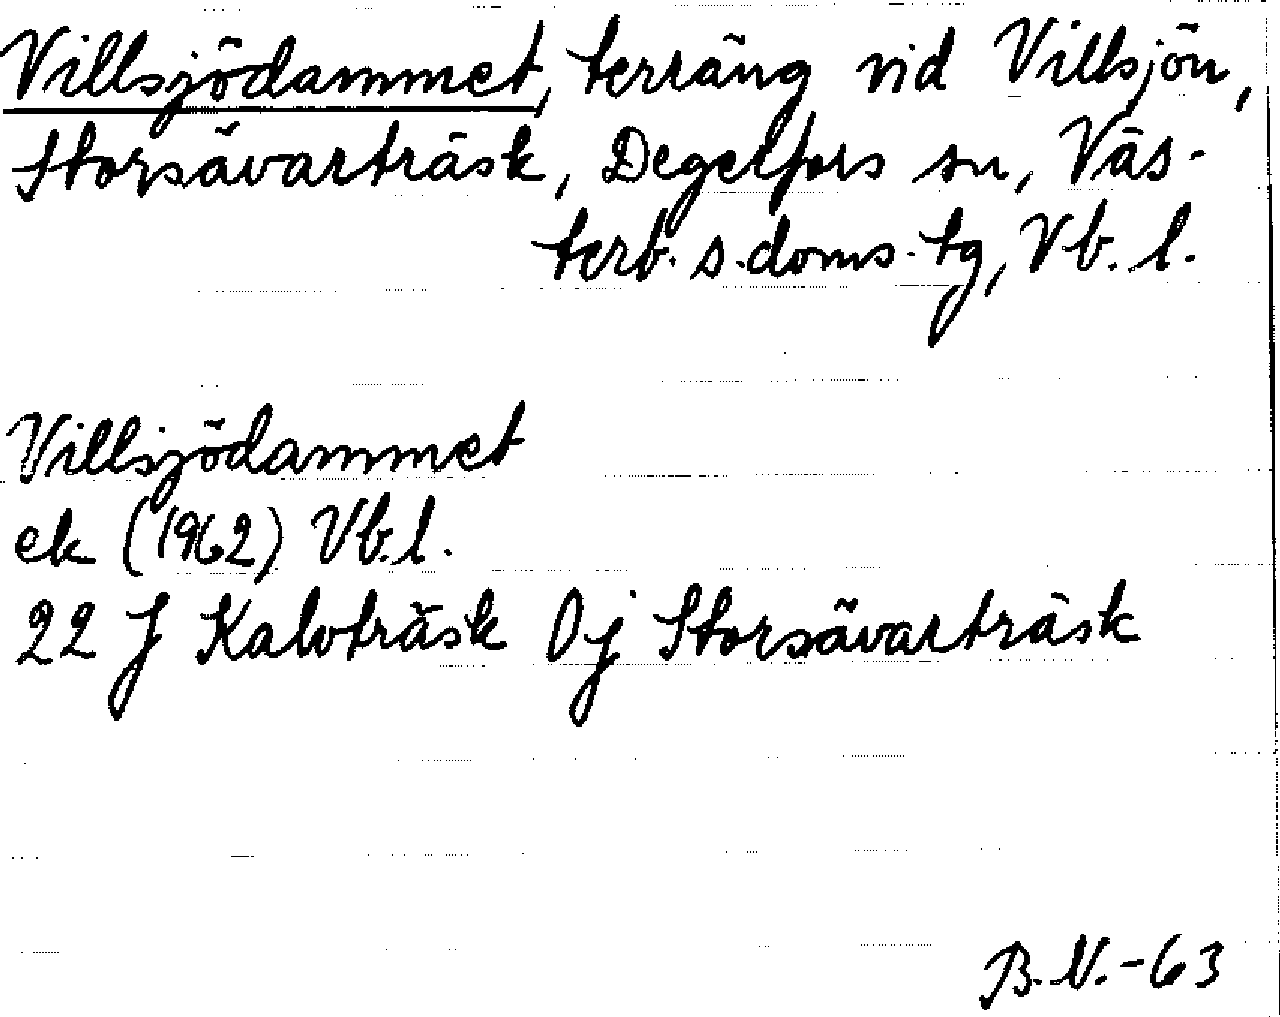 Villsjödammet, terräng vid Villsjön,
Storsävarträsk, Degerfors sn, Väs-
terb. s. doms. tg, Vb. l.
Villsjödammet
ek (1962) Vb. l.
22 J Kalvträsk 0j Storsävarträsk
B.N.-63